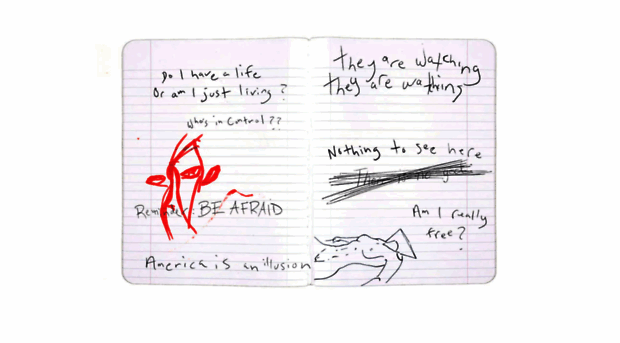 Do I have a life
Or am I just living?
Who's in Control??
Reminder: BE AFRAID
America is an illusion
they are watching
they are watching
Nothing to see here
Am I really
free?